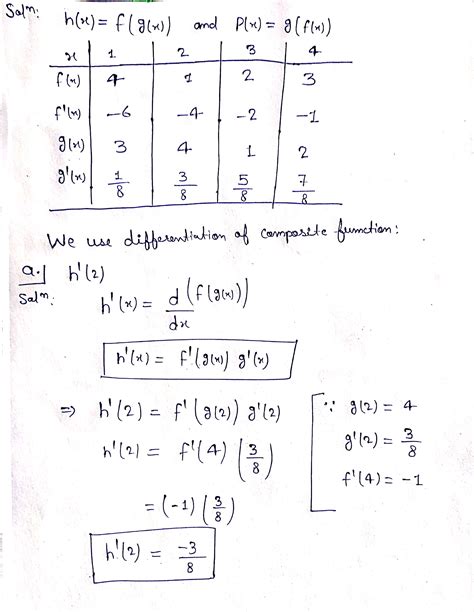 Solⁿ: h(x) = f(g(x)) and P(x) = g(f(x))
x 1 2 3 4
f(x) 4 1 2 3
f'(x) -6 -4 -2 -1
g(x) 3 4 1 2
g'(x) 1/8 3/8 5/8 7/8
We use differentiation of composite function:
a. h'(2)
Solⁿ:
h'(x) = d/dx (f(g(x)))
h'(x) = f'(g(x)) g'(x)
⇒ h'(2) = f'(g(2)) g'(2)
h'(2) = f'(4) (3/8)
= (-1) (3/8)
h'(2) = -3/8
∵ g(2) = 4
g'(2) = 3/8
f'(4) = -1